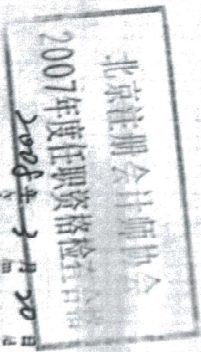 北京注册会计师协会
2007年度任职资格检
2008年3月20日